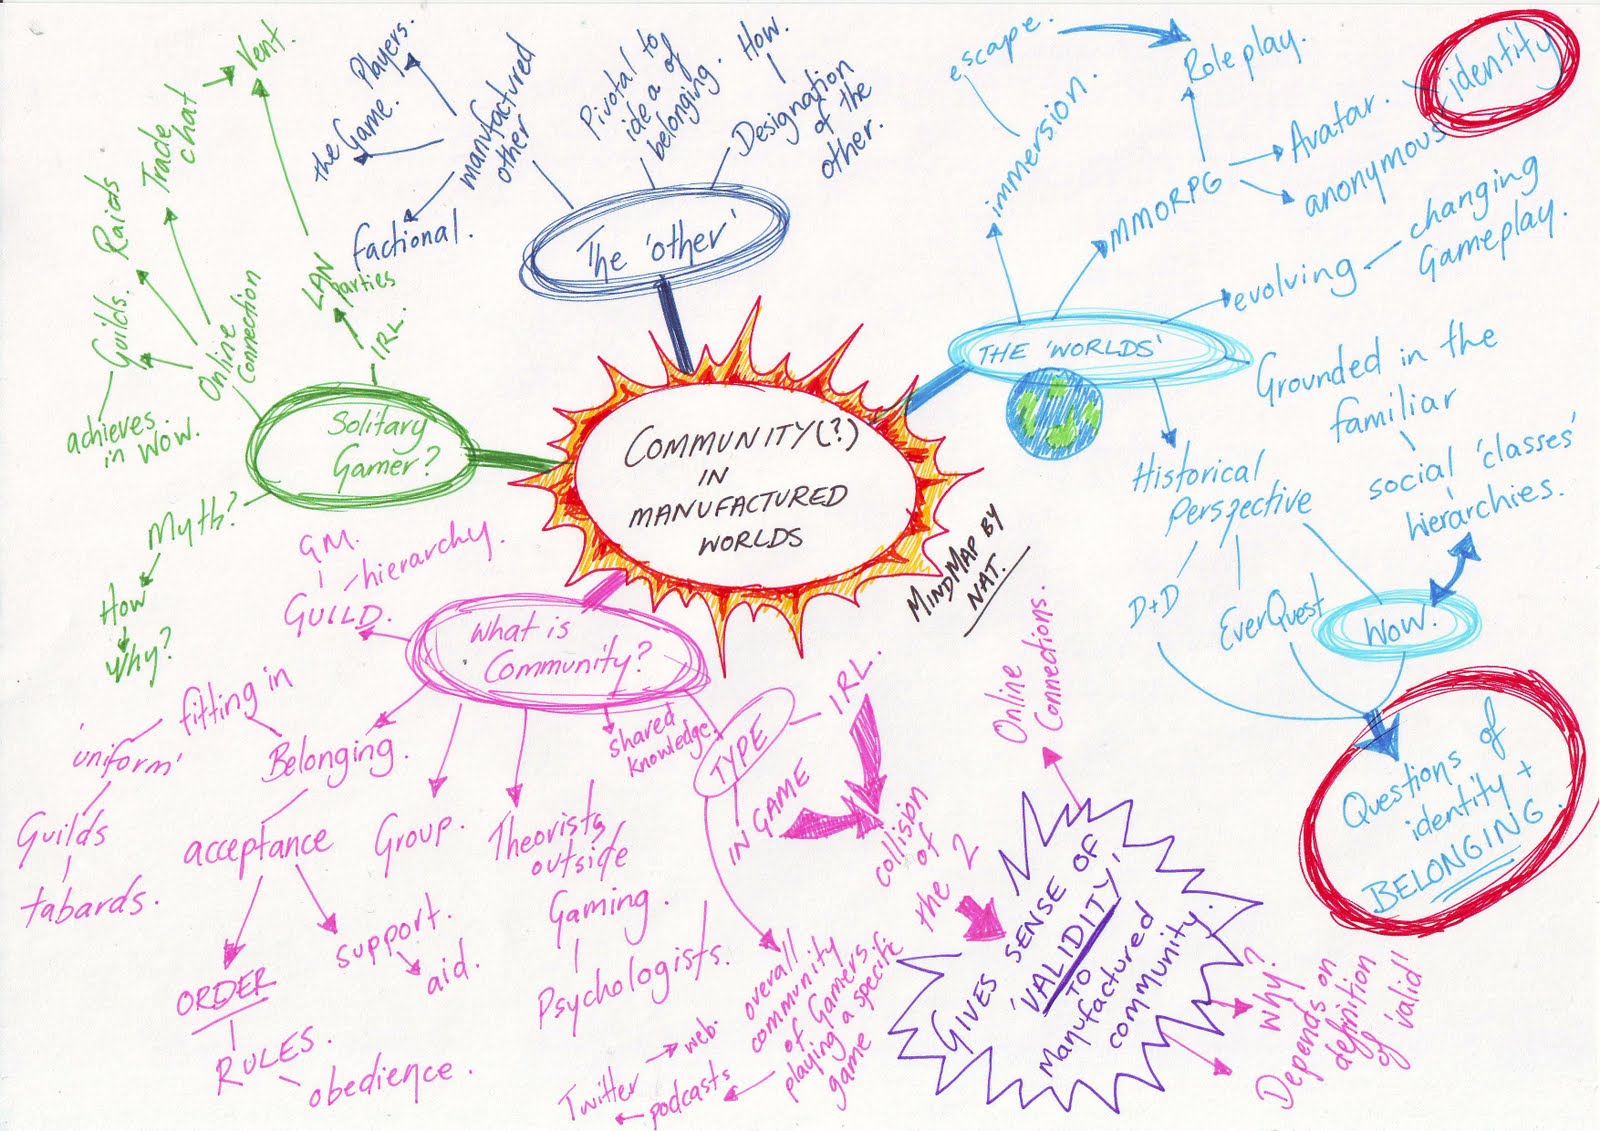 COMMUNITY(?)
IN
MANUFACTURED
WORLDS
MINDMAP BY
NAT.
The 'other'
manufactured
other
Players.
the Game.
factional.
Pivotal to
idea of
belonging.
How.
Designation
of the
other.
THE 'WORLDS'
immersion.
escape.
Roleplay.
MMORPG
Avatar.
anonymous
identity
evolving
changing
Gameplay.
Grounded in the
familiar
social 'classes'
hierarchies.
Historical
Perspective
D+D
EverQuest
WoW.
Questions of
identity +
BELONGING.
Solitary
Gamer?
IRL.
LAN
parties
Vent.
Online
Connection
Trade
chat
Raids
Guilds.
achieves
in WoW.
Myth?
How
Why?
What is
Community?
GUILD.
GM.
hierarchy.
Belonging.
fitting in
'uniform'
Guilds
tabards.
acceptance
ORDER
RULES.
obedience.
support.
aid.
Group.
Theorists
outside
Gaming.
Psychologists.
shared
knowledge.
TYPE
IRL.
IN GAME
collision
of
the 2
overall
community
of Gamers.
playing a specific
game
podcasts
Twitter
web.
GIVES SENSE OF
'VALIDITY'
TO
Manufactured
community.
Online
Connections.
Why?
Depends on
definition
of 'valid'